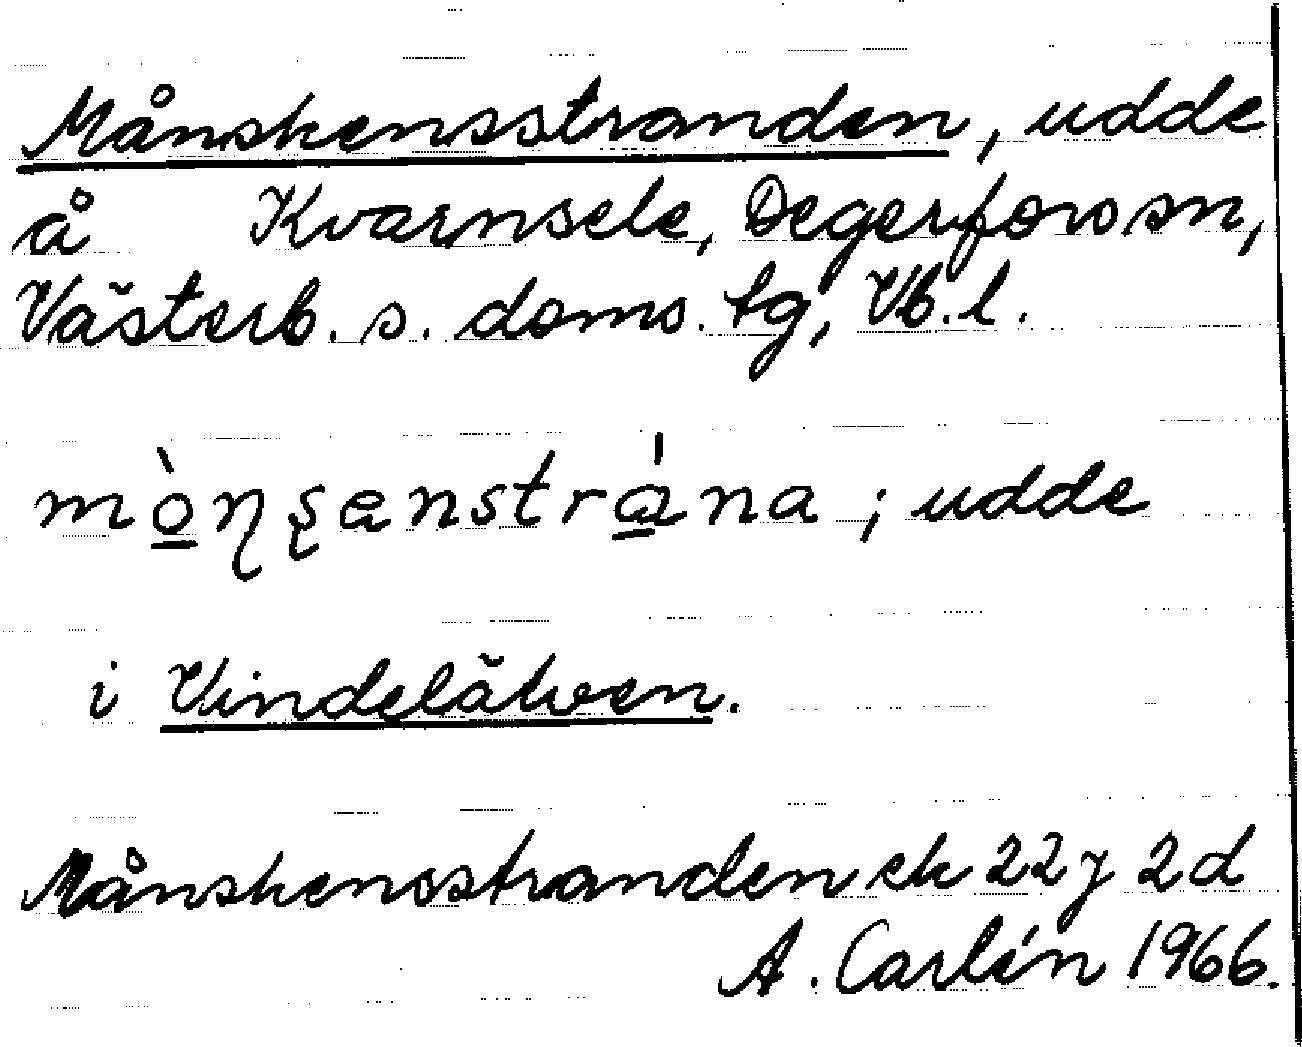 Månskensstranden, udde
å Kvarnsele, Degerfors sn,
Västerb. s. doms. tg, Vb. l.
mò̲ɳʂenstrá̲na ; udde
i Vindelälven.
Månskensstranden ek 22 j 2 d
A. Carlén 1966.